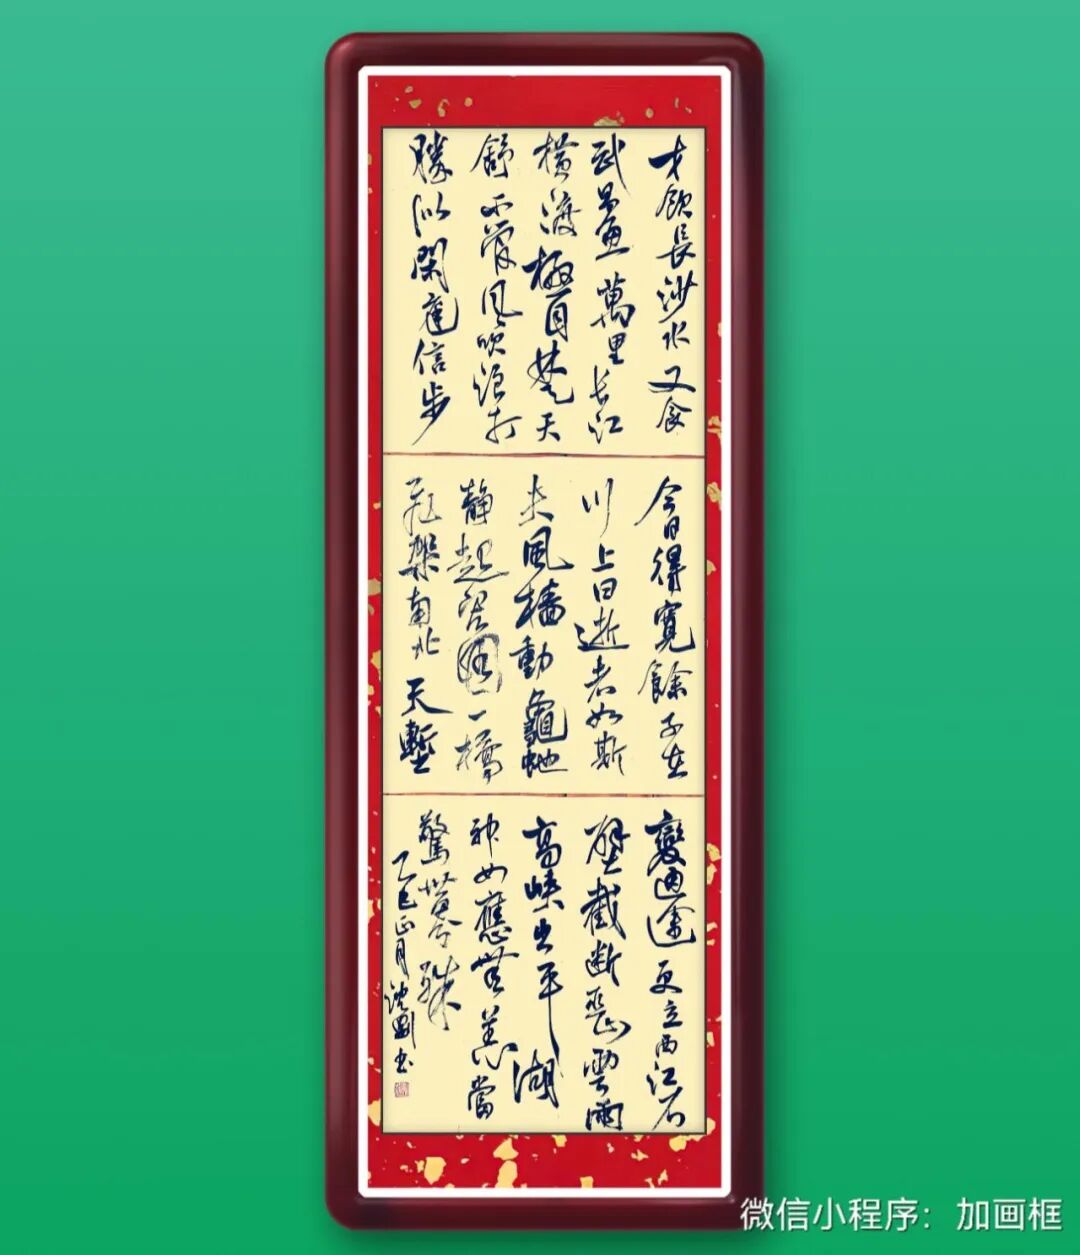 才飲長沙水又食
武昌魚萬里长江
横渡極目楚天
舒不管风吹浪打
勝似閑庭信步
今日得寬餘子在
川上曰逝者如斯
夫風檣動龜蛇
静起宏圖一橋
飛架南北天塹
變通途更立西江石
壁截断巫山雲雨
高峽出平湖
神女應無恙當
驚世界殊
乙巳正月 书
微信小程序：加画框